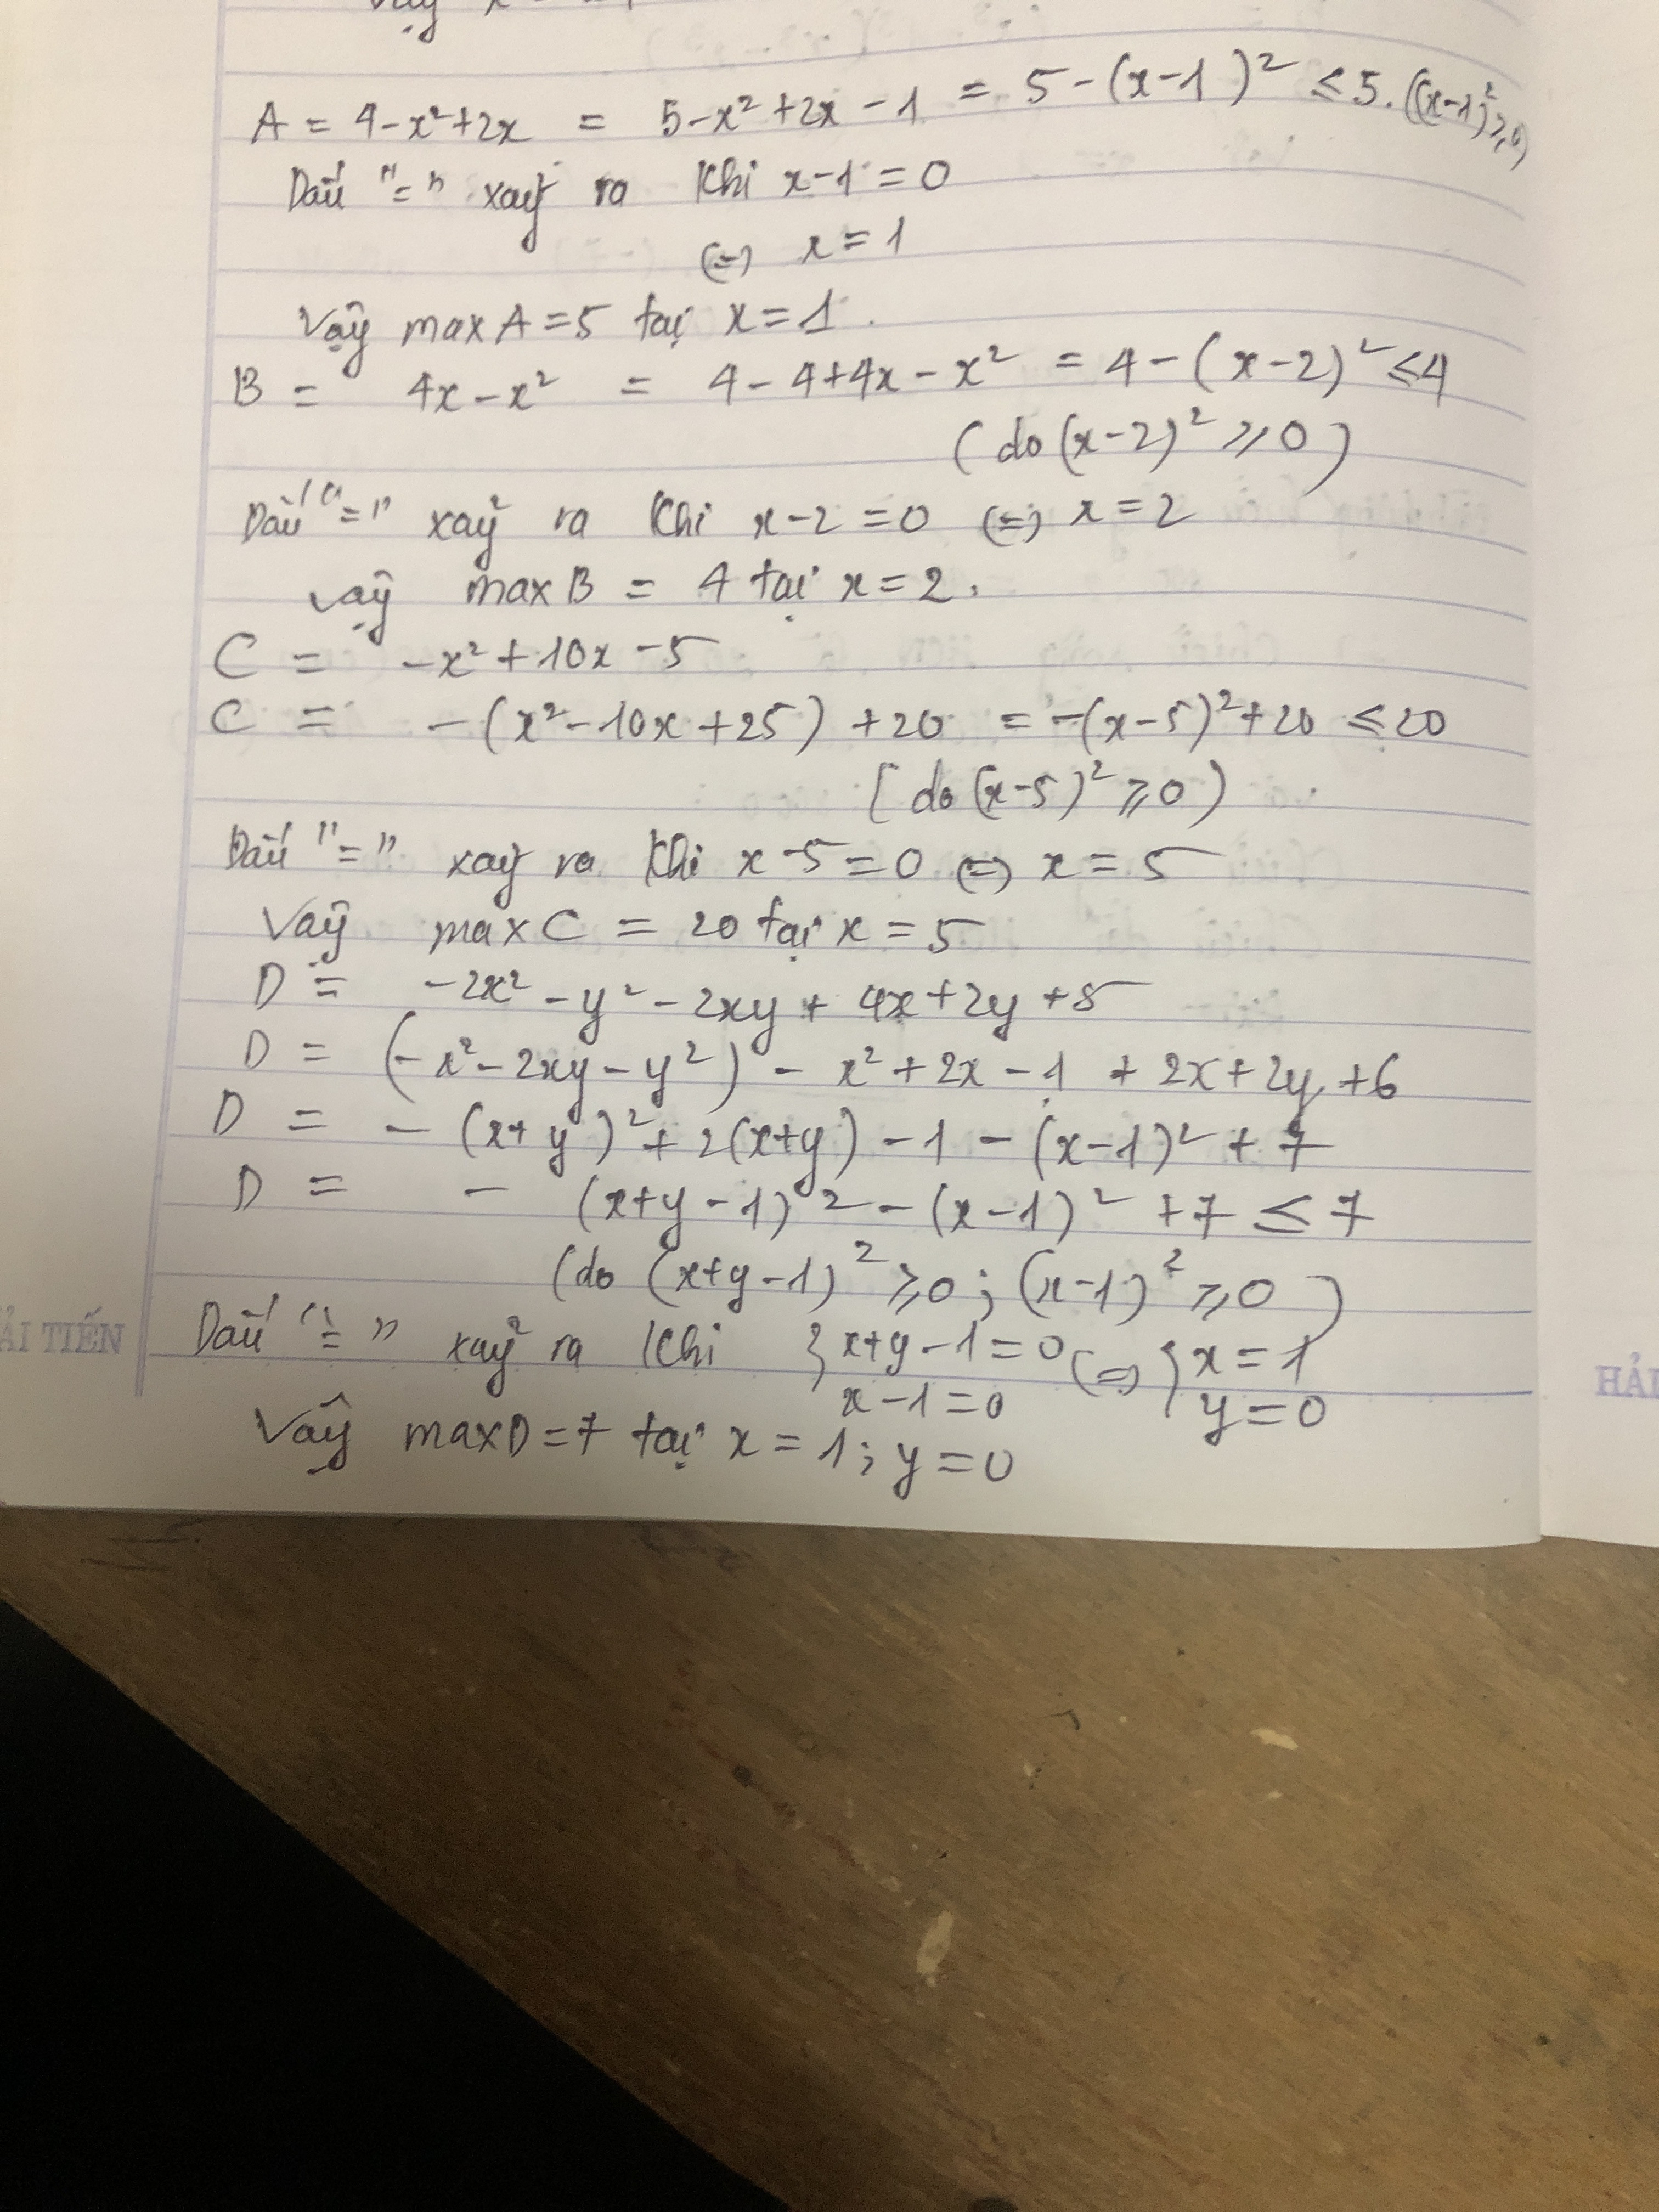 Vậy x
A = 4-x²+2x = 5-x²+2x-1 = 5-(x-1)² ≤ 5. ((x-1)² ≥ 0)
Dấu "=" xảy ra khi x-1=0
(=) x=1
Vậy max A=5 tại x=1.
B = 4x-x² = 4-4+4x-x² = 4-(x-2)² ≤4
(do (x-2)² ≥ 0)
Dấu "=" xảy ra khi x-2=0 (=) x=2
Vậy max B = 4 tại x=2.
C = -x²+10x-5
C = -(x²-10x+25)+20 = -(x-5)²+20 ≤ 20
[do (x-5)² ≥ 0)
Dấu "=" xảy ra khi x-5=0 (=) x=5
Vậy max C = 20 tại x=5
D = -2x²-y²-2xy+4x+2y+5
D = (-x²-2xy-y²)-x²+2x-1+2x+2y+6
D = -(x+y)²+2(x+y)-1-(x-1)²+7
D = -(x+y-1)²-(x-1)²+7 ≤ 7
(do (x+y-1)² ≥ 0; (x-1)² ≥ 0)
Dấu "=" xảy ra khi {x+y-1=0 (=) {x=1
x-1=0 y=0
Vậy max D=7 tại x=1; y=0
ẢI TIẾN
HẢI